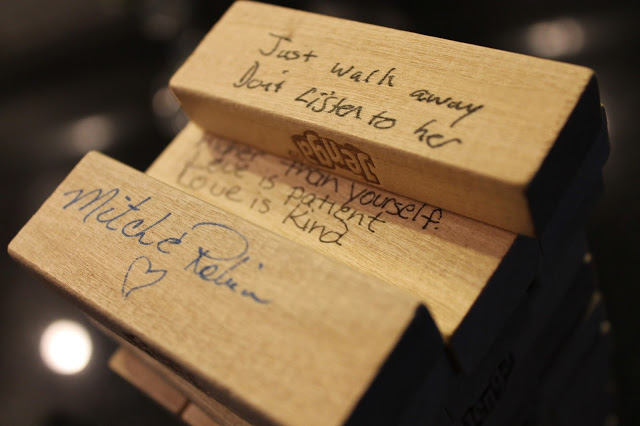 Just walk away
Don't Listen to her
Jenga
than yourself.
Love is patient
Love is kind
Mitch & Robin
Jenga